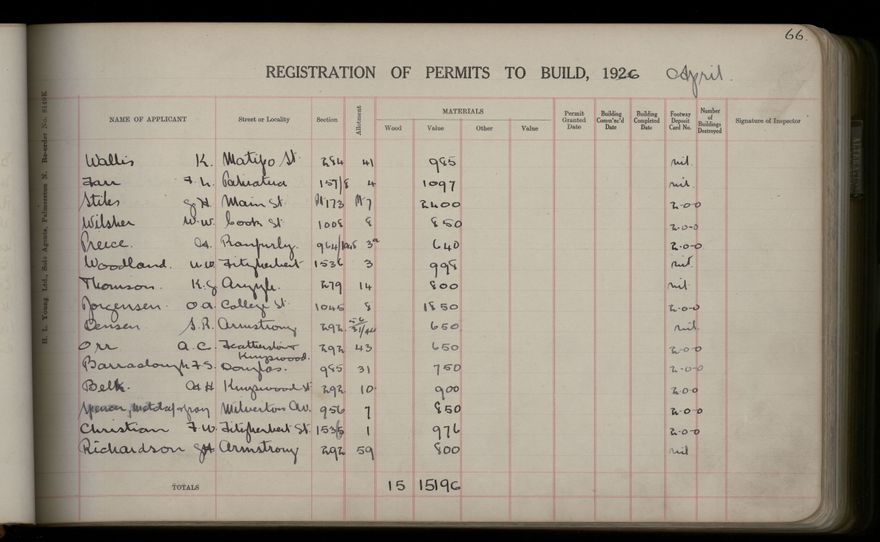 66.
REGISTRATION OF PERMITS TO BUILD, 1926 April.
H. L. Young, Ltd., Sole Agents, Palmerston N. Re-order No. 8149K
NAME OF APPLICANT Street or Locality Section Allotment MATERIALS Wood Value Other Value Permit Granted Date Building Comm'nc'd Date Building Completed Date Footway Deposit Card No. Number of Buildings Destroyed Signature of Inspector
Wallis K. Matipo St. 284 41 985 nil
Farr F. L. Pahiatua 157/8 4 1097 nil
Stiles G H Main St. M173 M7 2400 2-0-0
Wilsher W. W. Cook St. 1008 8 850 2-0-0
Preece. A. Ranfurly. 964 640 2-0-0
Woodland. W. W. Fitzherbert 1536 3 998 nil
Thomson. K. G Argyle. 279 14 800 nil
Jorgensen O A. College St. 1045 8 1850 2-0-0
Bensen S. R. Armstrong 292 650 nil
Orr A. C. Featherston & Kingswood. 292 43 650 2-0-0
Barraclough F S. Douglas. 985 31 750 2-0-0
Belk. A H Kingswood St 292 10 900 2-0-0
Spencer, Milverton Av. 956 7 850 2-0-0
Christian F. W. Fitzherbert St. 1536 1 976 2-0-0
Richardson G H Armstrong 292 59 800 nil
TOTALS 15 15196